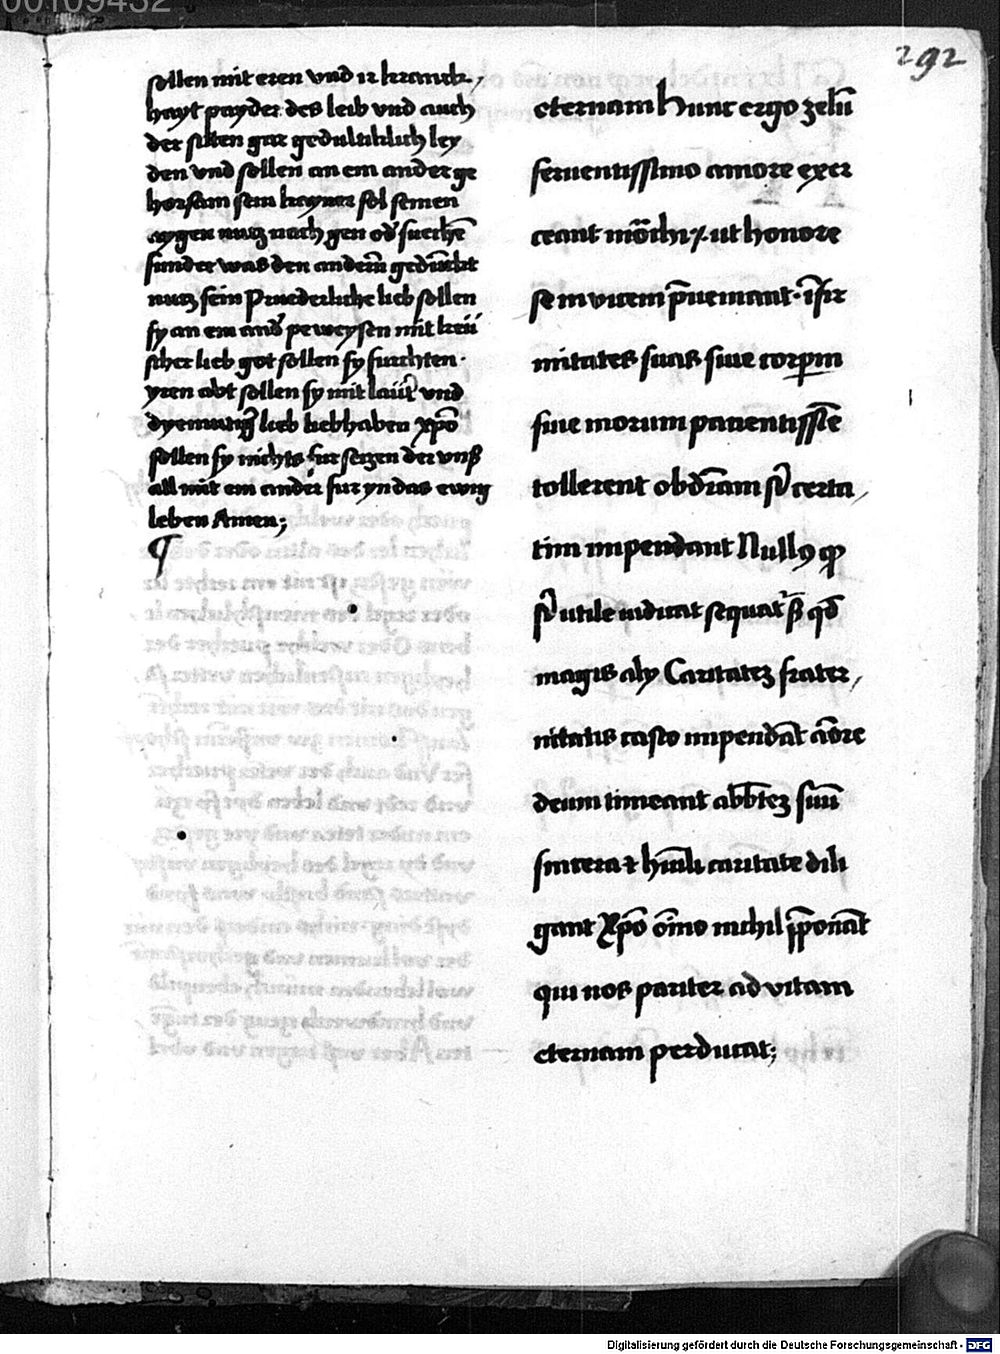 00109432
292
sollen mit eren vnd ir kranck⸗
hayt payder des leib vnd auch
der siten gar gedultiklich ley
den vnd sollen an em ander ge
horsam sein kayner sol seinen
aygen nutz nach gen od̓ suechē
sunder was den anderm̄ gedūckt
nutz sein Pruederliche lieb sollen
sy an em and̓ peweysen mit keü
scher lieb got sollen sy furchten·
yren abt sollen sy mit laut̓ vnd
dyemutig̓ lieb liebhaben xp̄o
sollen sy nichts fur setzen der vnß
all mit em ander fur yn das ewig
leben Amen;
¶
eternam Hunc ergo zelū
feruentissimo amore exer
ceant mōchi ⁊ ut honore
se inuicem p̄ueniant· īfir
mitates suas siue corpꝝm
siue morum pacientissīe
tollerent obd̄iam s̓ certa⸗
tim impendant Nullꝰ qp̄
s̓ utile iudicat sequat̓ ß qd̄
magis alij Caritatez frater⸗
nitatis casto impendāt aōre
deum timeant abb̄tez suū
sincera ⁊ hūili caritate dili
gant Xp̄o oīno nichil p̄ponāt
qui nos pariter ad vitam
eternam perducat;
Digitalisierung gefördert durch die Deutsche Forschungsgemeinschaft - DFG